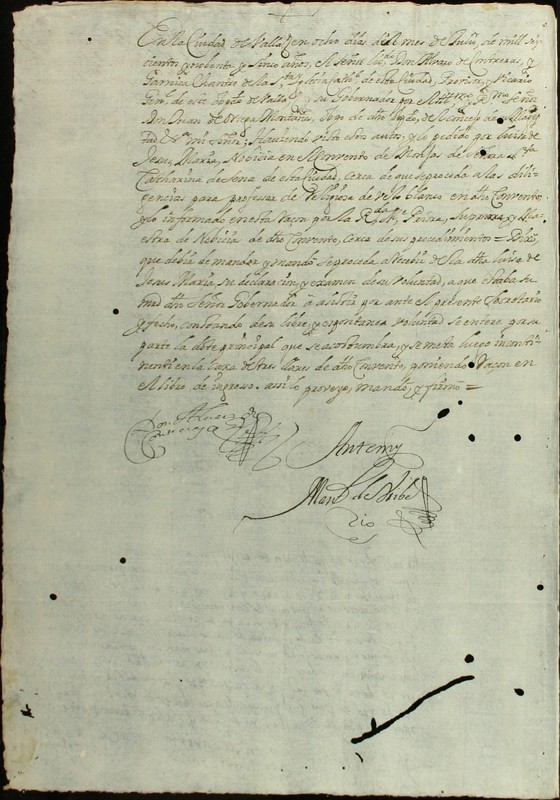 En la Ciudad de Valla.d en ocho dias del mes de Julio, de mill seis
cientos y ochenta y sinco años, el Señor Liz.do Don Alvaro de Contreras, y
Garnica Chantre de la S.ta Yglesia Cath.l de esta Ciudad, Provisor, y Vicario
Gen.l de este obpdo de Valla.d y su Gobernador por el Ill.mo y R.mo Señor
Don Juan de Ortega Montañes, Obpo de dho Obpdo, del Consejo de su Mages
tad &.a mi señor; Haviendo visto estos autos, y lo pedido por Luisa de
Jesus Maria, Nobicia en el Convento de Monjas de Señora S.ta
Catharina de Sena de esta Ciudad, cerca de que se proceda a las dili-
gencias para professar de Religiosa de velo blanco en dho Convento,
y lo informado en esta razon por la R.da M.e Priora, Supriora, y Ma-
estra de Nobicias de dho Convento, cerca de sus procedimientos = Dixo,
que debia de mandar, y mandò se proceda a recebir de la dha Luisa de
Jesus Maria su declaracion, y examen de su voluntad, a que estaba su
md dho Señor Gobernador à asistir por ante el presente Secretario
y fecho, constando de su libre, y espontanea voluntad se entere por su
parte la dote principal que se acostumbra, y se meta luego incontin-
nenti en la Caxa de tres llaves de dho Convento, poniendo razon en
el libro de ingreso. assi lo proveyo, mandò, y firmò =
Don Alvaro de
Contreras y
Antemy